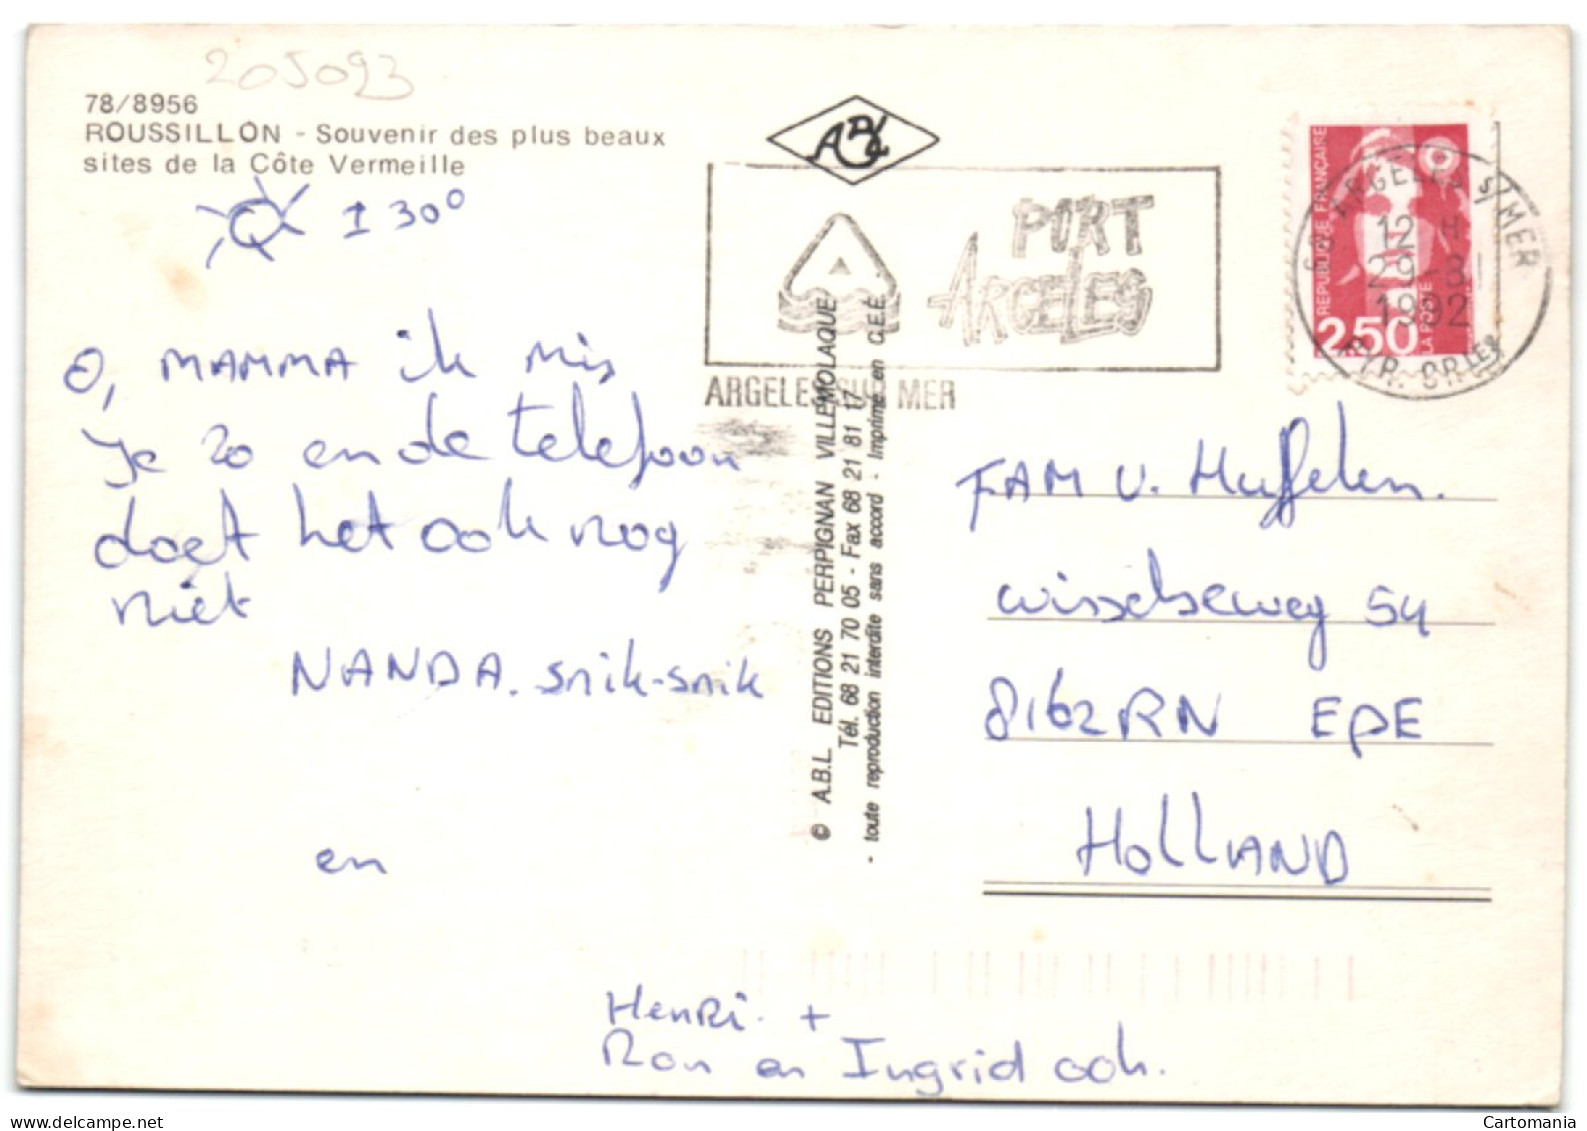 205093
78/8956
ROUSSILLON - Souvenir des plus beaux
sites de la Côte Vermeille
± 30°
O, MAMMA ik mis
Je zo en de telefoon
doet het ook nog
niet
NANDA. snik-snik
en
Henri. +
Ron en Ingrid ook.
© A.B.L. EDITIONS PERPIGNAN VILLEMOLAQUE
Tél. 68 21 70 05 - Fax 68 21 81 17
- toute reproduction interdite sans accord - Imprimé en C.E.E.
PORT
ARGELES
ARGELES SUR MER
REPUBLIQUE FRANÇAISE
2,50
LA POSTE
66 ARGELES S/MER
12 H
29-8
1992
PYR. ORLES
FAM v. Huffelen.
wisselseweg 54
8162RN EPE
HOLLAND
Cartomania